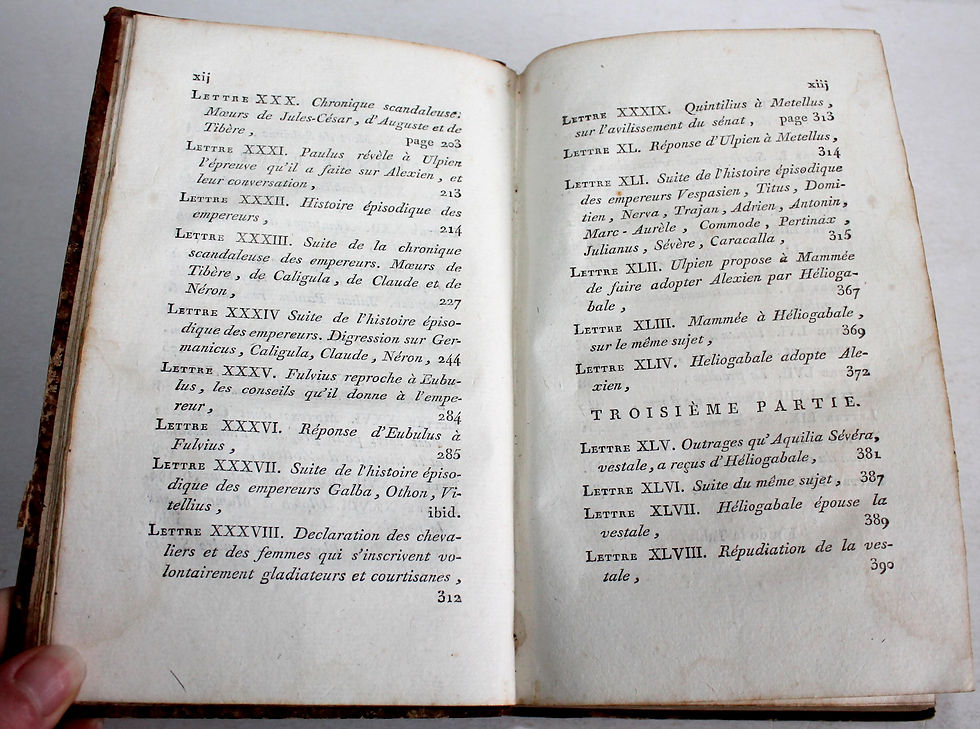 xij
LETTRE XXX. Chronique scandaleuse.
Mœurs de Jules-César, d'Auguste et de
Tibère, page 203
LETTRE XXXI. Paulus révèle à Ulpien
l'épreuve qu'il a faite sur Alexien, et
leur conversation, 213
LETTRE XXXII. Histoire épisodique des
empereurs, 214
LETTRE XXXIII. Suite de la chronique
scandaleuse des empereurs. Mœurs de
Tibère, de Caligula, de Claude et de
Néron, 227
LETTRE XXXIV Suite de l'histoire épiso-
dique des empereurs. Digression sur Ger-
manicus, Caligula, Claude, Néron, 244
LETTRE XXXV. Fulvius reproche à Eubu-
lus, les conseils qu'il donne à l'empe-
reur, 284
LETTRE XXXVI. Réponse d'Eubulus à
Fulvius, 285
LETTRE XXXVII. Suite de l'histoire épiso-
dique des empereurs Galba, Othon, Vi-
tellius, ibid.
LETTRE XXXVIII. Declaration des cheva-
liers et des femmes qui s'inscrivent vo-
lontairement gladiateurs et courtisanes,
312
xiij
LETTRE XXXIX. Quintilius à Metellus,
sur l'avilissement du sénat, page 313
LETTRE XL. Réponse d'Ulpien à Metellus,
314
LETTRE XLI. Suite de l'histoire épisodique
des empereurs Vespasien, Titus, Domi-
tien, Nerva, Trajan, Adrien, Antonin,
Marc-Aurèle, Commode, Pertinax,
Julianus, Sévère, Caracalla, 315
LETTRE XLII. Ulpien propose à Mammée
de faire adopter Alexien par Hélioga-
bale, 367
LETTRE XLIII. Mammée à Héliogabale,
sur le même sujet, 369
LETTRE XLIV. Heliogabale adopte Ale-
xien, 372
TROISIÈME PARTIE.
LETTRE XLV. Outrages qu'Aquilia Sévéra,
vestale, a reçus d'Héliogabale, 381
LETTRE XLVI. Suite du même sujet, 387
LETTRE XLVII. Héliogabale épouse la
vestale, 389
LETTRE XLVIII. Répudiation de la ves-
tale, 390